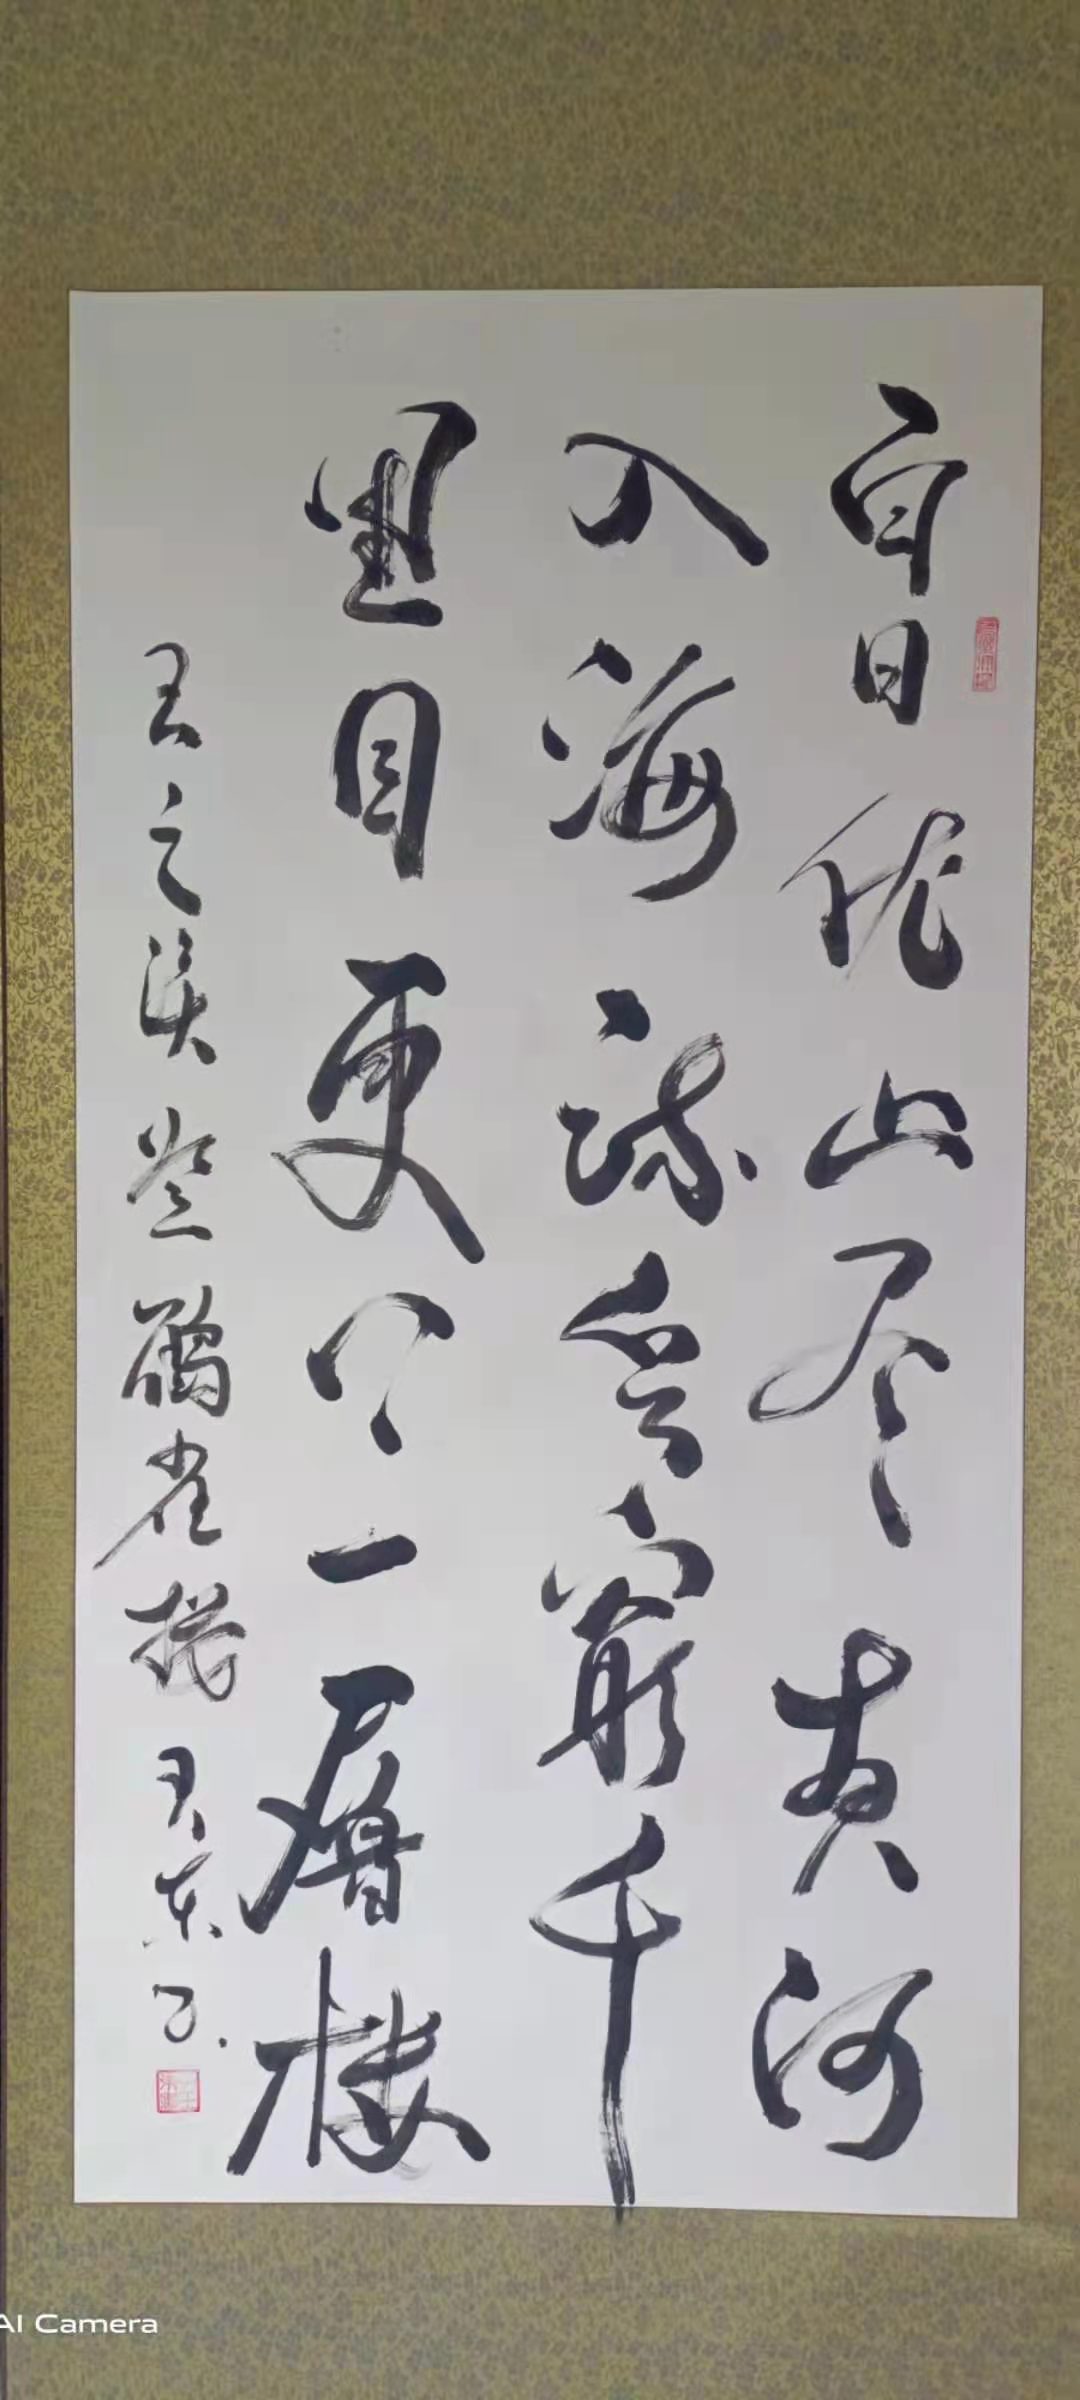 白日依山尽黄河
入海流欲穷千
里目更上一层楼
王之涣登鹳雀楼
AI Camera